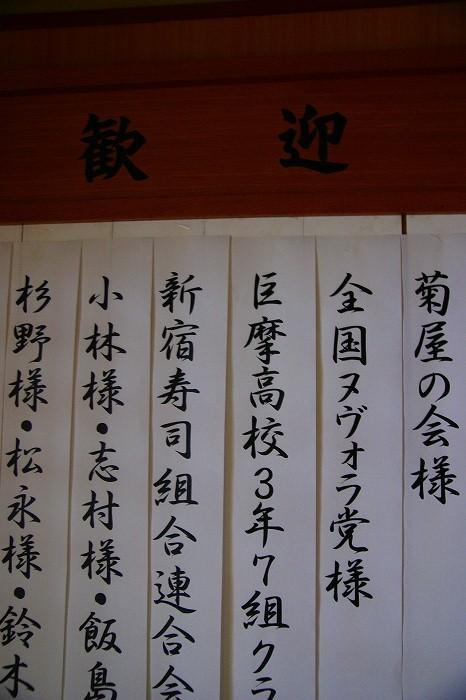 歓迎
菊屋の会様
全国ヌヴォラ党様
巨摩高校3年7組クラ
新宿寿司組合連合会
小林様・志村様・飯島
杉野様・松永様・鈴木